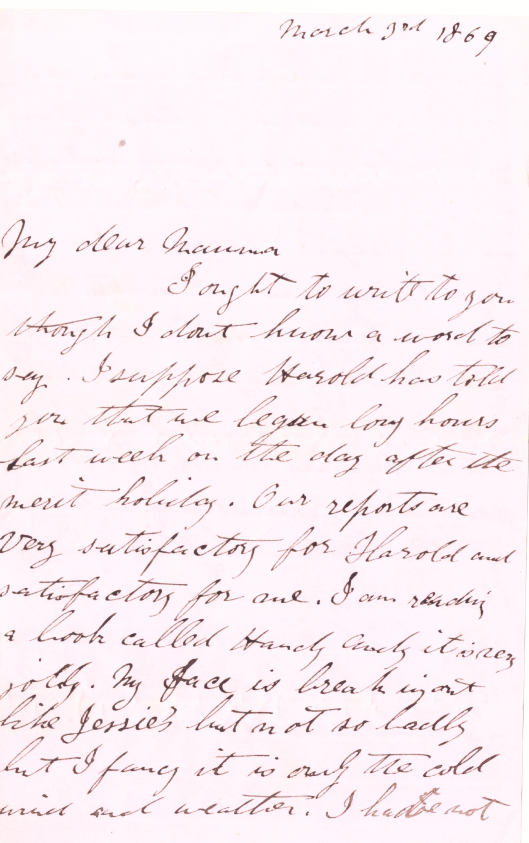 March 3rd 1869
My dear Mamma
I ought to write to you
though I dont know a word to
say. I suppose Harold has told
you that we began long hours
last week on the day after the
merit holiday. Our reports are
very satisfactory for Harold and
satisfactory for me. I am reading
a book called Handy Andy it is very
jolly. My face is break ing out
like Jessie's but not so badly
but I fancy it is only the cold
wind and weather. I have not